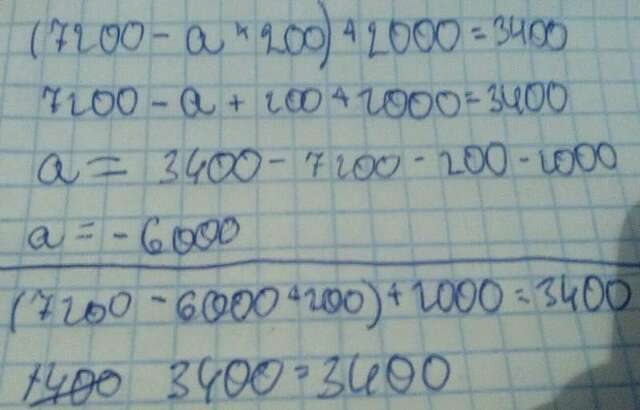 (7200 - a + 200) + 2000 = 3400
7200 - a + 200 + 2000 = 3400
a = 3400 - 7200 - 200 - 2000
a = - 6000
(7200 - 6000 + 200) + 2000 = 3400
1400 3400 = 3400